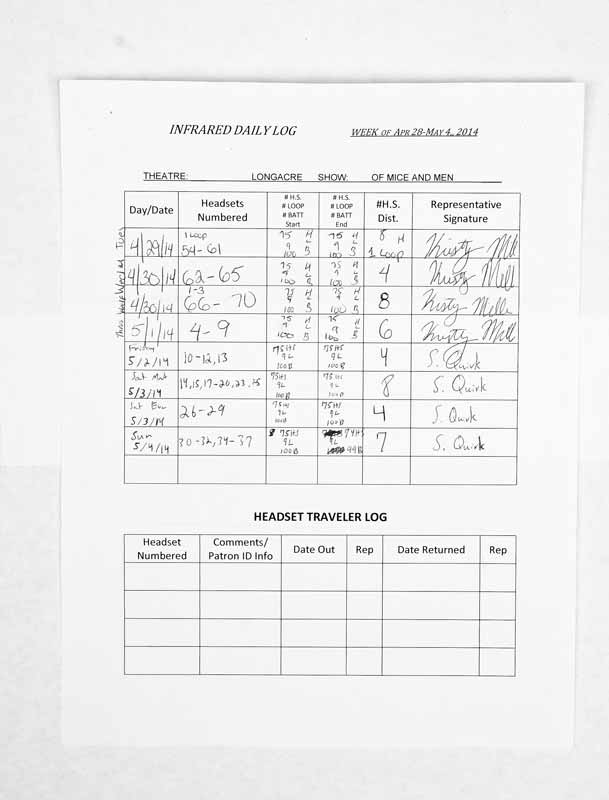 INFRARED DAILY LOG WEEK OF APR 28-MAY 4,, 2014
THEATRE: LONGACRE SHOW: OF MICE AND MEN
Day/Date Headsets Numbered # H.S. # LOOP # BATT Start # H.S. # LOOP # BATT End #H.S. Dist. Representative Signature
Tues 4/29/14 1 Loop 54-61 75 H 9 L 100 B 75 H 9 L 100 B 8 H 1 Loop Kristy Mill
4/30/14 62-65 75 H 9 L 100 B 75 H 9 L 100 B 4 Kristy Mill
4/30/14 1-3 66-70 75 H 9 L 100 B 75 H 9 L 100 B 8 Kristy Mille
Thurs 5/1/14 4-9 75 H 9 L 100 B 75 H 9 L 100 B 6 Kristy Mill
Friday 5/2/14 10-12,13 75HS 9L 100B 75HS 9L 100B 4 S. Quirk
Sat Mat 5/3/14 14,15,17-20,23,25 75HS 9L 100B 75HS 9L 100B 8 S. Quirk
Sat Eve 5/3/14 26-29 75HS 9L 100B 75HS 9L 100B 4 S. Quirk
Sun 5/4/14 30-32,34-37 75HS 9L 100B 74HS 9L 99B 7 S. Quirk
HEADSET TRAVELER LOG
Headset Numbered Comments/ Patron ID Info Date Out Rep Date Returned Rep